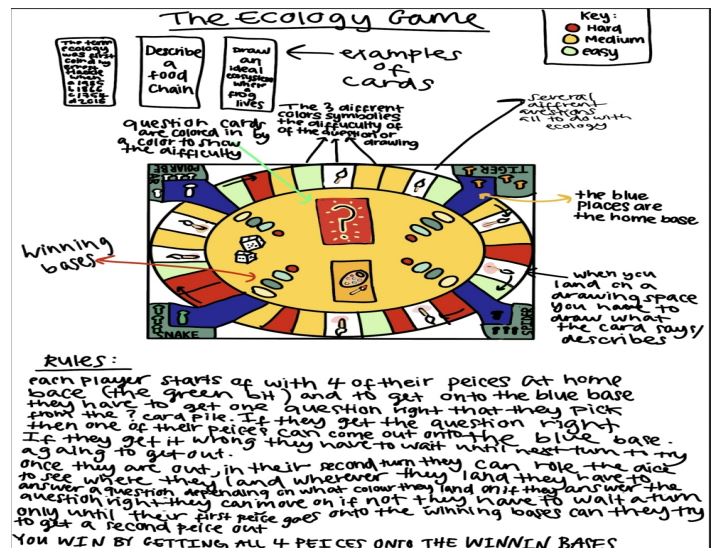 The Ecology Game
Key:
Hard
Medium
easy
The term
ecology
was first
coined by
ernest
a 1985
b 1866
c 1954
d 2016
Describe
a
food
Chain
Draw
an
ideal
ecosystem
where
a
frog
lives
examples
of
cards
question cards
are colored in by
a color to show
the difficulty
The 3 diffrent
colors symbolies
the diffuculty of
of the question or
drawing
Several
diffrent
questions
all to do with
ecology
POLARBE
TIGER
the blue
places are
the home base
winning
bases
?
when you
land on a
drawing space
you have to
draw what
the card says/
describes
SNAKE
SPIDER
RULES:
each player starts of with 4 of their peices at home
bace (the green bit) and to get onto the blue base
they have to get one question right that they pick
from the ? card pile. If they get the question right
then one of their peices can come out onto the blue base.
If they get it wrong they have to wait until next turn to try
again to get out.
once they are out, in their second turn they can role the dice
to see where they land wherever they land they have to
answer a question depending on what colour they land on if they answer the
question right they can move on if not they have to wait a turn
only until their first peice goes onto the winning bases can they try
to get a second peice out
YOU WIN BY GETTING ALL 4 PEICES ONTO THE WINNIN BASES